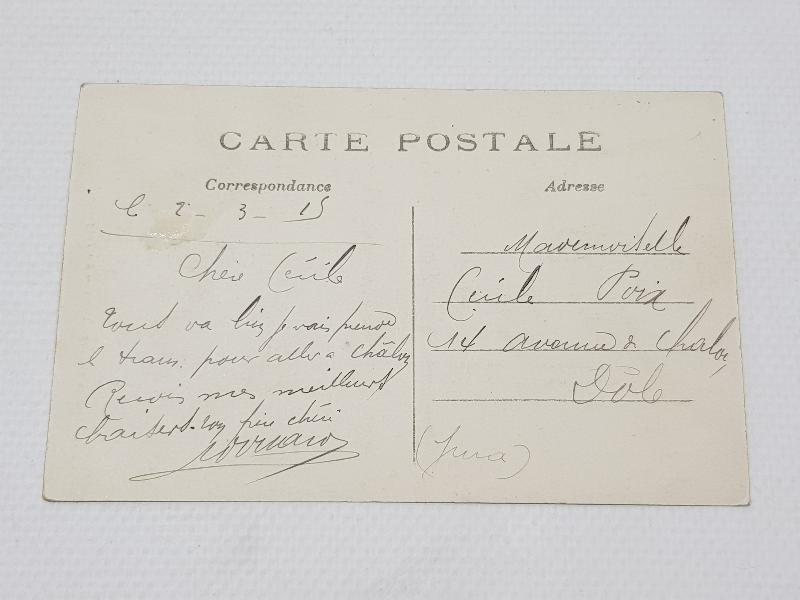 CARTE POSTALE
Correspondance
Adresse
2 - 3 - 15
Chère Cécile
Tout va bien je vais prendre
le train pour aller a Châlon
Recois mes meilleurs
baisers. ton frère chéri
Mademoiselle
Cécile Poix
14 avenue de Chalon,
Dôle
(Jura)